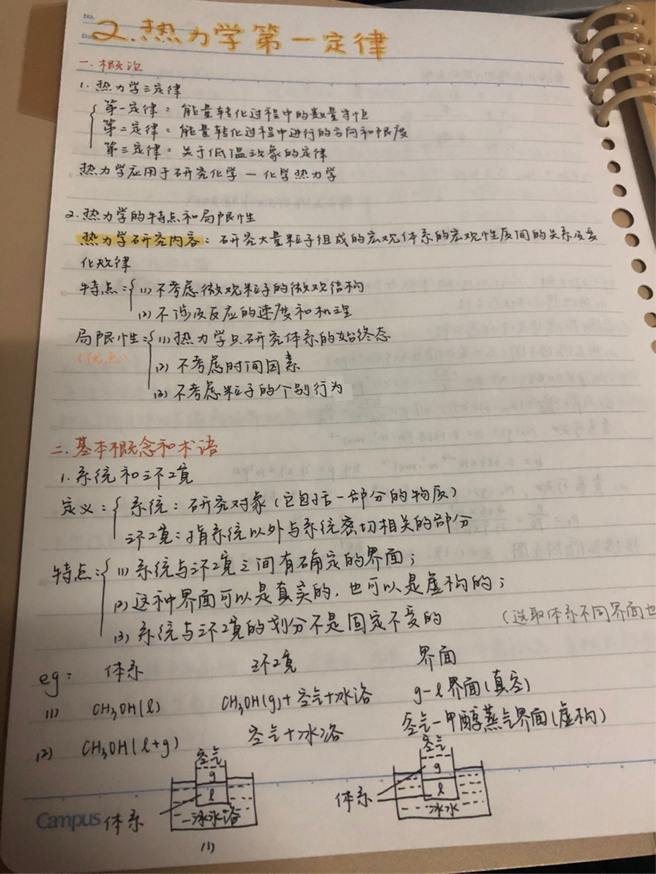 No.
Da
2.热力学第一定律
一.概论
1.热力学三定律
第一定律：能量转化过程中的数量守恒
第二定律：能量转化过程中进行的方向和限度
第三定律：关于低温现象的定律
热力学应用于研究化学—化学热力学
2.热力学的特点和局限性
热力学研究内容：研究大量粒子组成的宏观体系的宏观性质间的关系及变
化规律
特点：(1)不考虑微观粒子的微观结构
(2)不涉及反应的速度和机理
局限性：(1)热力学只研究体系的始终态
(优点) (2)不考虑时间因素
(3)不考虑粒子的个别行为
二.基本概念和术语
1.系统和环境
定义：系统：研究对象(它包括一部分的物质)
环境：指系统以外与系统密切相关的部分
特点：(1)系统与环境之间有确定的界面；
(2)这种界面可以是真实的，也可以是虚构的；
(3)系统与环境的划分不是固定不变的 (选取体系不同界面也
eg： 体系 环境 界面
(1) CH3OH(l) CH3OH(g)+空气+冰浴 g-l界面(真实)
(2) CH3OH(l+g) 空气+冰浴 空气-甲醇蒸气界面(虚构)
空气 空气
g g
体系 l 体系 l
冰水浴 冰水
Campus
(1)